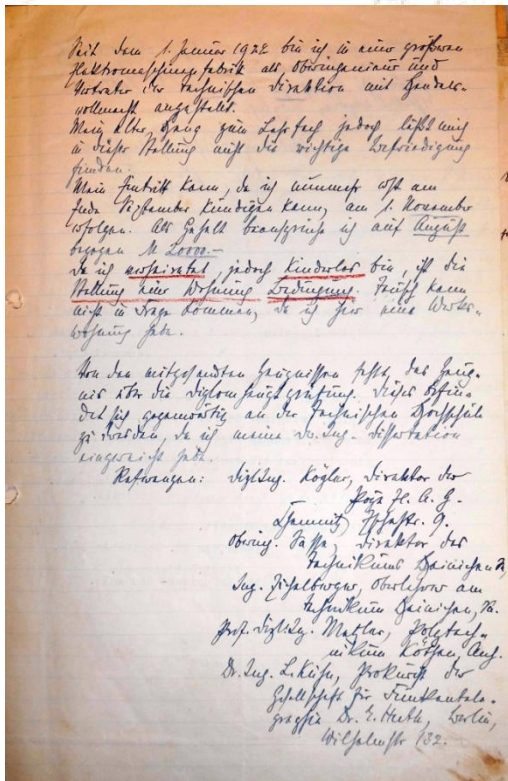 Seit dem 1. Januar 1922 bin ich in einer größeren
Elektromaschinenfabrik als Oberingenieur und
Vertreter der technischen Direktion mit Handels-
vollmacht angestellt.
Mein alter Hang zum Lehrfach jedoch läßt mich
in dieser Stellung nicht die richtige Befriedigung
finden.
Mein Eintritt kann, da ich nunmehr erst am
Ende September kündigen kann, am 1. November
erfolgen. Als Gehalt beanspruche ich auf August
bezogen M
Da ich verheiratet, jedoch kinderlos bin, ist die
Stellung einer Wohnung Bedingung. Tausch kann
nicht in Frage kommen, da ich hier eine Werks-
wohnung habe.
Von den mitgesandten Zeugnissen fehlt das Zeug-
nis über die Diplomhauptprüfung. Dieses befin-
det sich gegenwärtig an der Technischen Hochschule
zu Dresden, da ich meine Dr. Ing. Dissertation
eingereicht habe.
Referenzen: Dipl.Ing. Kögler, Direktor der
Pöge El. A. G.
Chemnitz
Obering. Direktor des
Technikums Hainichen
Ing. Oberlehrer am
Technikum Hainichen,
Prof. Dipl.Ing. Polytech-
nikum Köthen, Anh.
Dr. Ing. L. Kühn, Prokurist der
Gesellschaft für Funkentele-
graphie Dr. E. Huth, Berlin,
Wilhelmstr 132.